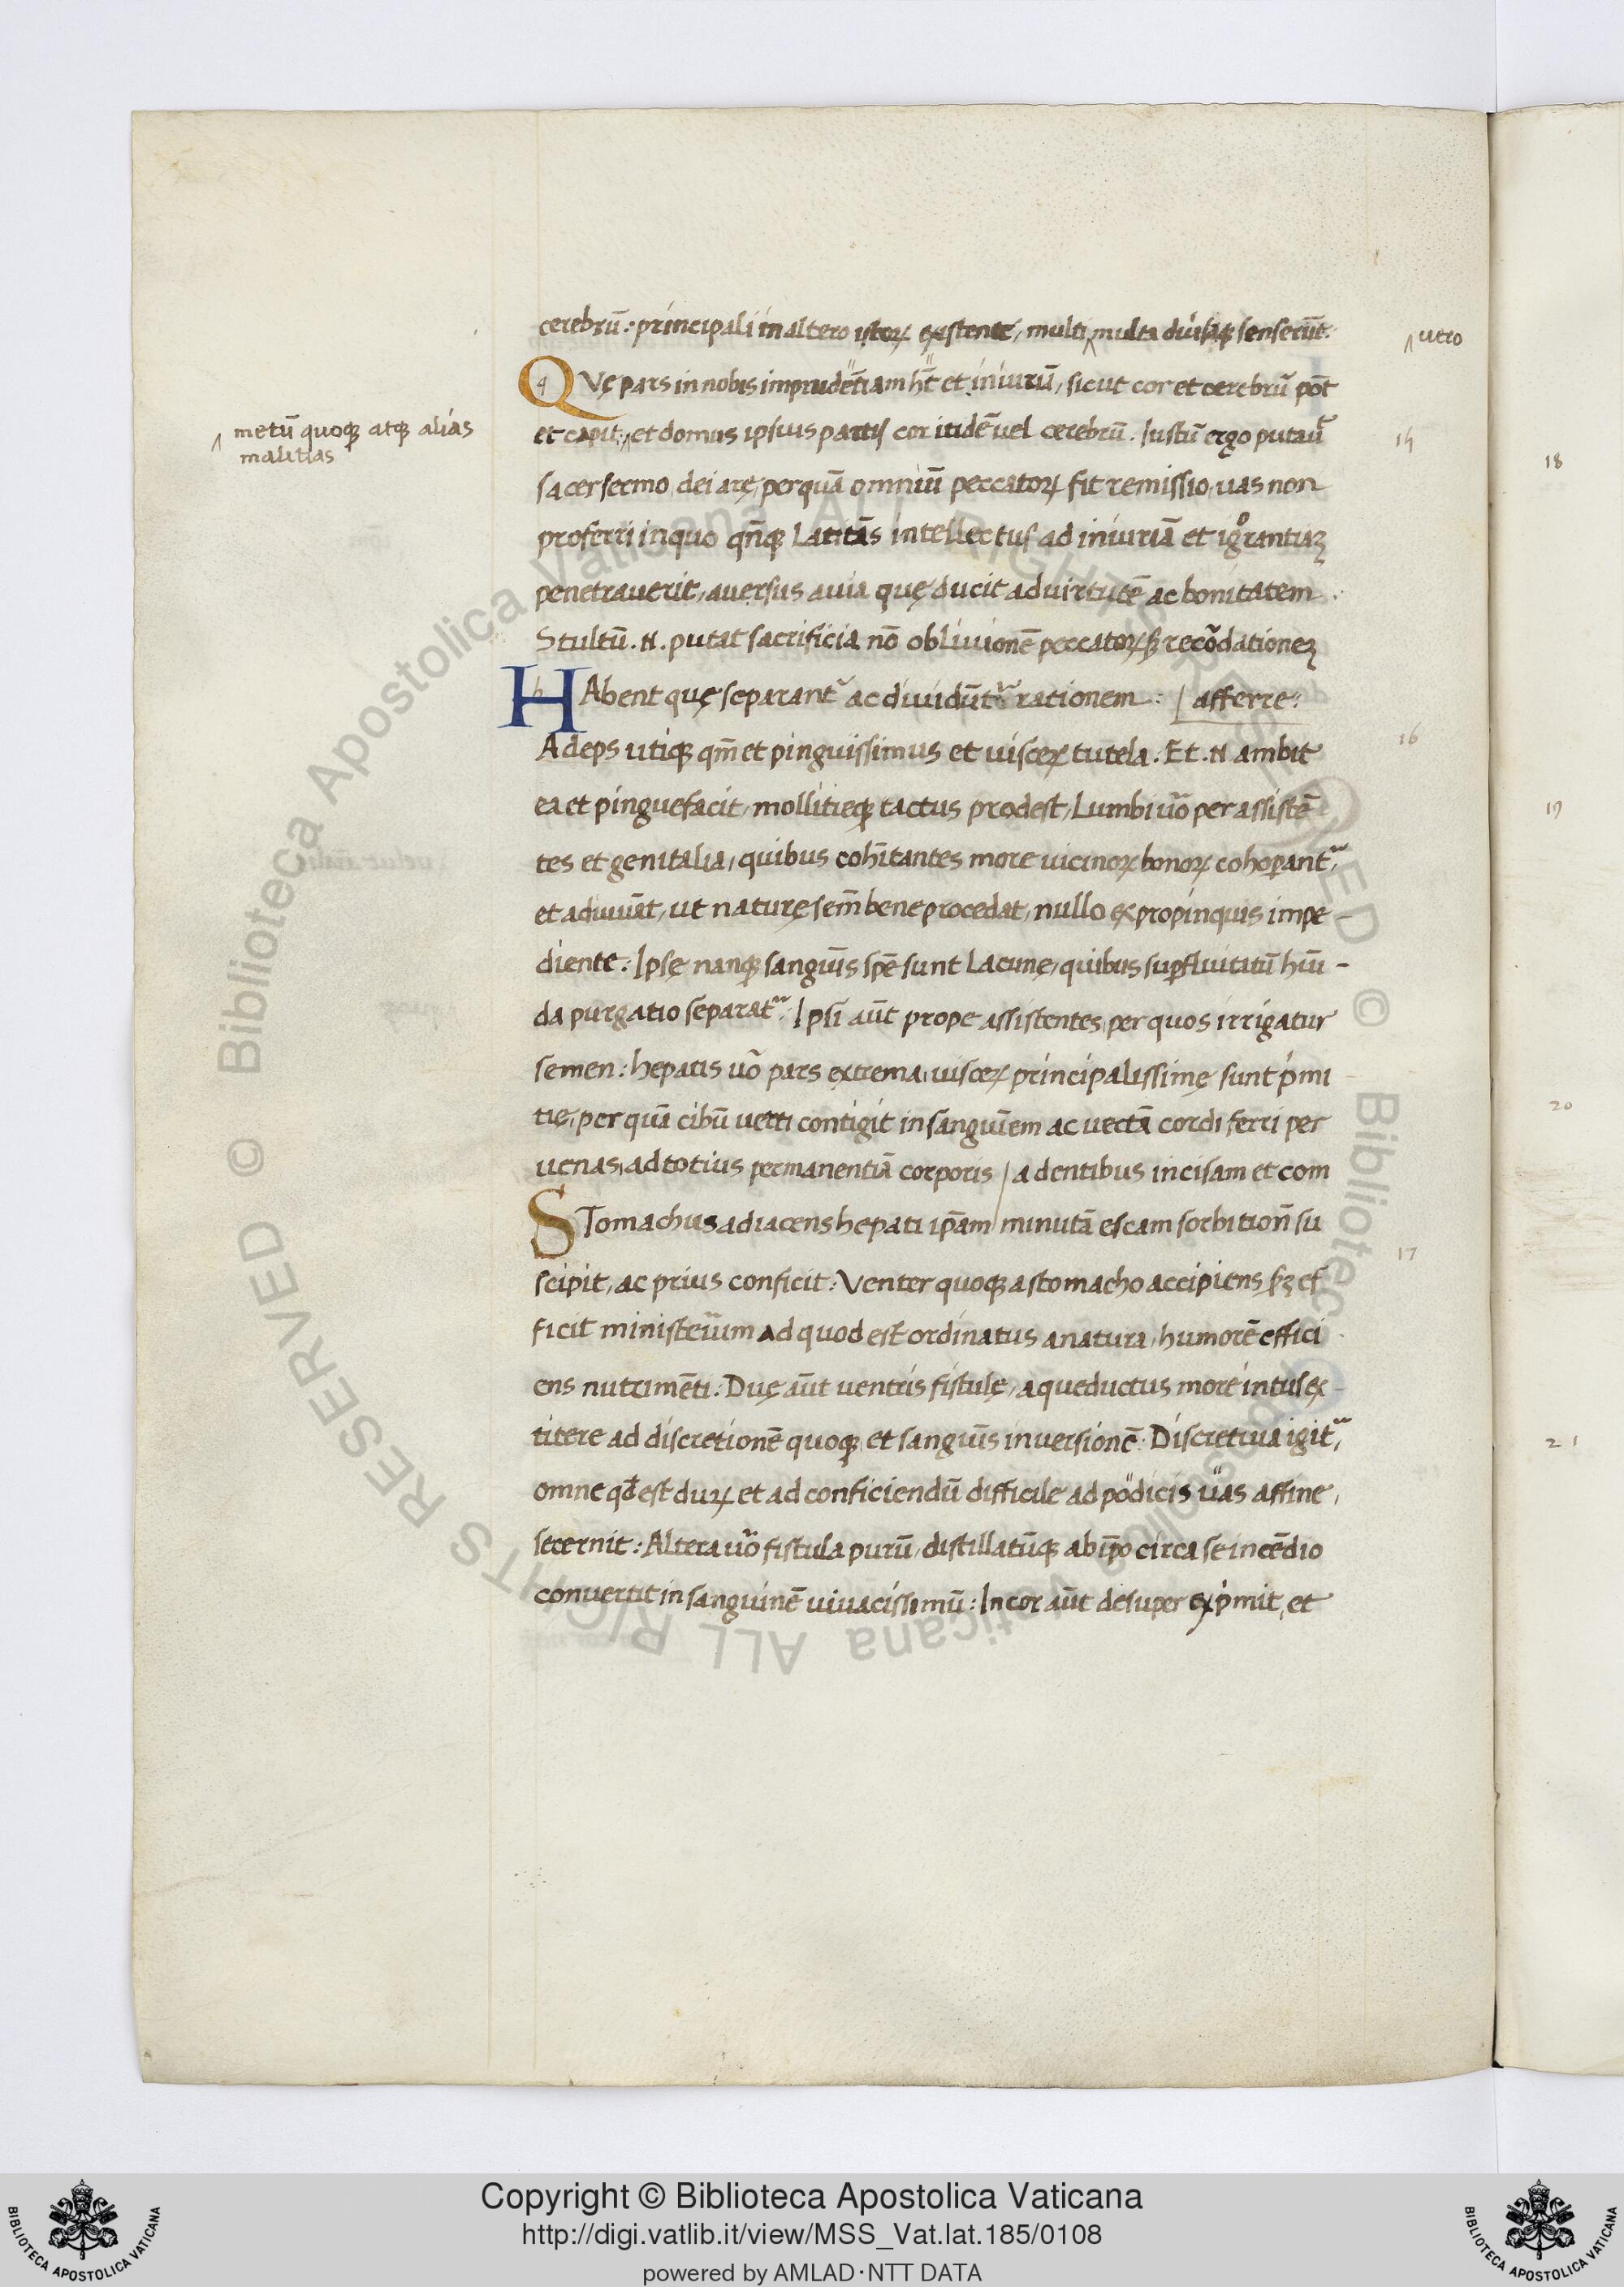 cerebrū: principali in altero istoꝝ existente, multi multa diuisaqꝫ senserūt:
utro
QVę pars in nobis imprudētiam hēt et iniuriā, sicut cor et cerebrū pōt
et capit, et domus ipsius partis cor itidē uel cerebrū. Iustū ergo putauͬ
metū quoqꝫ atqꝫ alias
malitias
14
sacer sermo dei arę, per quā omniū peccatoꝝ fit remissio, uas non
proferri in quo qn̄qꝫ Latitās intellectus ad iniuriā et igͦrantiaꝫ
penetrauerit, auersus a uia quę ducit ad uirtutē ac bonitatem.
Stultū. N. putat sacrificia nō obliuionē peccatoꝝ sꝫ recōdationeꝫ
HAbent quę separantͬ ac diuidūtͬ rationem: | afferre:
Adeps utiqꝫ qm̄ et pinguissimus et uisceꝝ tutela. Et. N ambit
16
ea et pinguefacit, mollitieqꝫ tactus prodest, Lumbi uo᷑ per assistē
tes et genitalia, quibus coh̄itantes more uicinoꝝ bonoꝝ cohoꝑantͬ,
et adiuuāt, ut naturę sem̄ bene procedat, nullo ex propinquis impe-
diente: Ipsę nanqꝫ sanguīs spē sunt Lacunę, quibus suꝑfluitatū hūi-
da purgatio separatͬ. Ipsi aūt prope assistentes, per quos irrigatur
semen: hepatis uo᷑ pars extrema, uisceꝝ principalissimę sunt pͥmi
tię, per quā cibū uerti contigit in sanguīem ac uectā cordi ferri per
uenas, ad totius permanentiā corporis / a dentibus incisam et com
STomachus adiacens hepati ip̄am / minutā escam sorbition̄ su
17
scipit, ac prius conficit: Venter quoqꝫ a stomacho accipiens sꝫ ef
ficit ministerium ad quod est ordinatus a natura, humorē effici
ens nutrimēti: Duę aūt uentris fistulę, aqueductus more intus ex-
titere ad discretionē quoqꝫ et sanguīs inuersionē: Discretiua igitͬ,
omne qđ est duꝝ et ad conficiendū difficile ad podicis uias affine,
secernit: Altera uo᷑ fistula purū, distillatūqꝫ ab ip̄o circa se incēdio
conuertit in sanguinē uiuacissimū: In cor aūt desuper expͥmit, et
18
19
20
21
Copyright © Biblioteca Apostolica Vaticana
http://digi.vatlib.it/view/MSS_Vat.lat.185/0108
powered by AMLAD·NTT DATA
BIBLIOTECA APOSTOLICA VATICANA
BIBLIOTECA APOSTOLICA VATICANA
© Biblioteca Apostolica Vaticana ALL RIGHTS RESERVED © Biblioteca Apostolica Vaticana ALL RIGHTS RESERVED